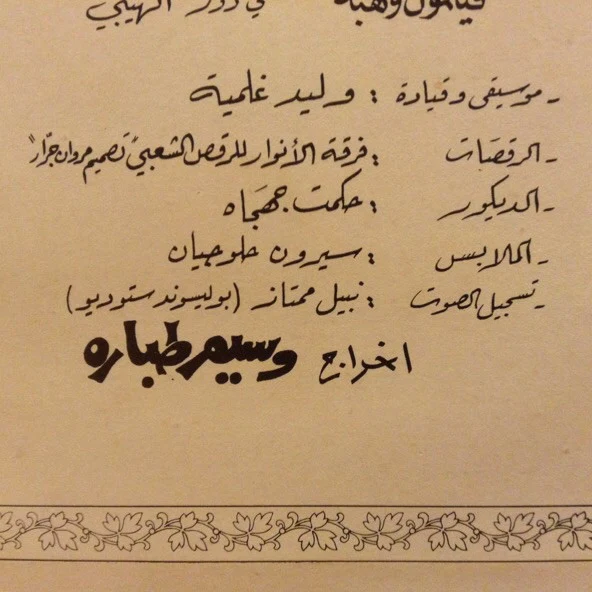 فيلمون وهبه في دور الهيبي
- موسيقى وقيادة : وليد غلمية
- الرقصات : فرقة الأنوار للرقص الشعبي "تصميم مروان جرّار"
- الديكور : حكمت جهجاه
- الملابس : سيرون حلوجيان
- تسجيل الصوت : نبيل ممتاز (بوليسوند ستوديو)
اخراج وسيم طباره